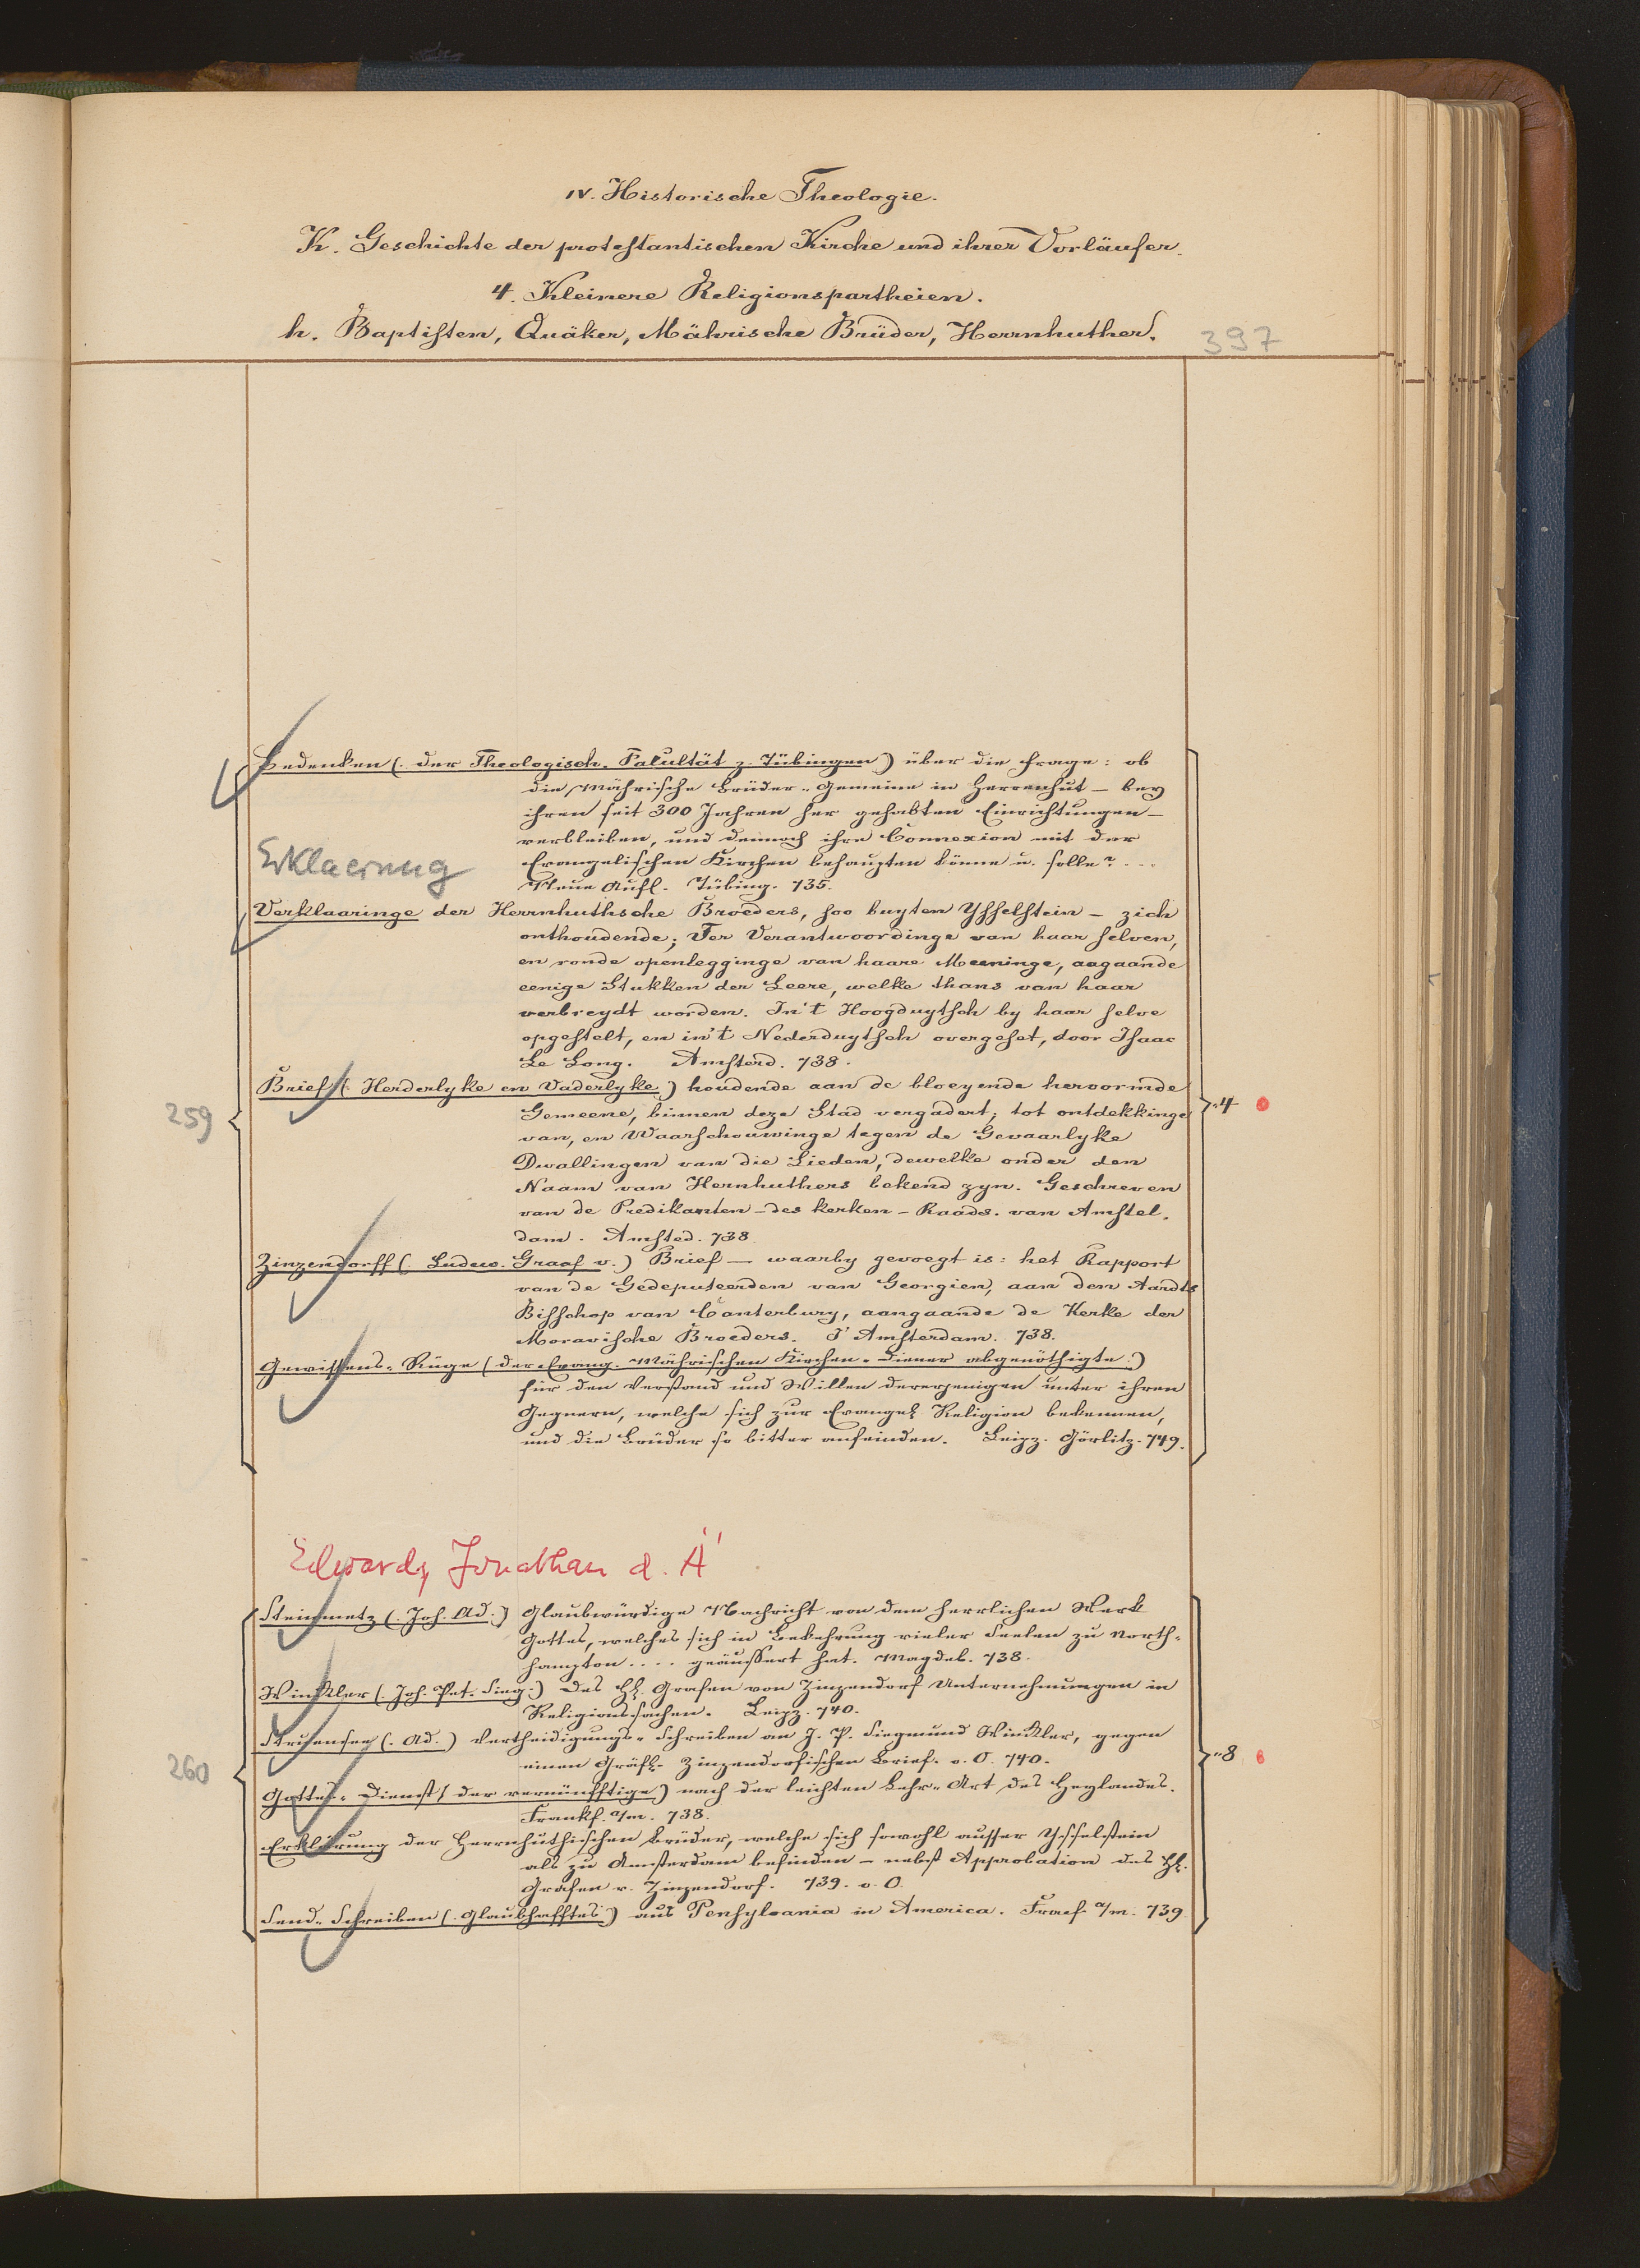 IV. Historische Theologie.
K. Geschichte der protestantischen Kirche und ihrer Vorläufer.
4. Kleinere Religionspartheien.
h. Baptisten, Quäker, Mährische Brüder, Herrnhuther.
397
Bedenken (. der Theologisch. Fakultät z. Tübingen) über die Frage: ob
die Mährische Brüder-Gemeine in Herrenhut – bey
ihren seit 300 Jahren her gehabten Einrichtungen –
verbleiben, und dennoch ihre Connexion mit der
Erklaerung
Evangelischen Kirchen behaupten könne u. solle? ...
Neue Aufl. Tübing. 735.
Verklaaringe der Herrnhuthsche Broeders, soo buyten Ysselstein – zich
onthoudende; Ter Verantwoordinge van haar selven,
en ronde openlegginge van haare Meeninge, aagaande
eenige Stukken der Leere, welke thans van haar
verbreydt worden. In't Hoogduytsch by haar selve
opgestelt, en in't Nederduytsch overgeset, door Isaac
Le Long. Amsterd. 738.
Brief (. Herderlyke en Vaderlyke) houdende aan de bloeyende hervormde
Gemeene, binnen deze Stad vergadert; tot ontdekkinge
259
-4
van, en Waarschouwinge tegen de Gevaarlyke
Dwallingen van die Lieden, dewelke onder den
Naam van Hernhuthers bekend zyn. Geschreven
van de Predikanten – des kerken-Raads. van Amstel.
dam. Amsted. 738.
Zinzendorff (. Ludew. Graaf v.) Brief – waarby gevoegt is: het Rapport
van de Gedeputeerden van Georgien, aan den Aardts
Bisschop van Canterbury, aangaande de Kerke der
Moravische Broeders. T' Amsterdam. 738.
Gewissens-Rüge (der Evang. Mährischen Kirchen-Diener abgenöthigte.)
für den Verstand und Willen dererjenigen unter ihren
Gegnern, welche sich zur Evangel. Religion bekennen,
und die Brüder so bitter anfeinden. Leipz. Görlitz. 749.
Edwards, Jonathan d. Ä
Steinmetz (. Joh. Ad.) Glaubwürdige Nachricht von dem herrlichen Werk
Gottes, welches sich in Bekehrung vieler Seelen zu North-
hampton .... geäussert hat. Magdeb. 738.
Winkler (. Joh. Pet. Sieg.) Des H. Grafen von Zinzendorf Unternehmungen in
Religionssachen. Leipz. 740.
Struensee (. Ad.) Vertheidigungs-Schreiben an J. P. Siegmund Winkler, gegen
260
einen Gräfl. Zinzendorfischen Brief. o. O. 740.
-8
Gottes-Dienst (der vernünfftige) nach der leichten Lehr-Art des Heylandes.
Frankf. a/m. 738.
Erklärung der Herrnhuthischen Brüder, welche sich sowohl ausser Ysselstein
als zu Amsterdam befinden – nebst Approbation des H.
Grafen v. Zinzendorf. 739. o. O.
Send-Schreiben (. Glaubhafftes) aus Pensylvania in America. Franf. a/m. 739